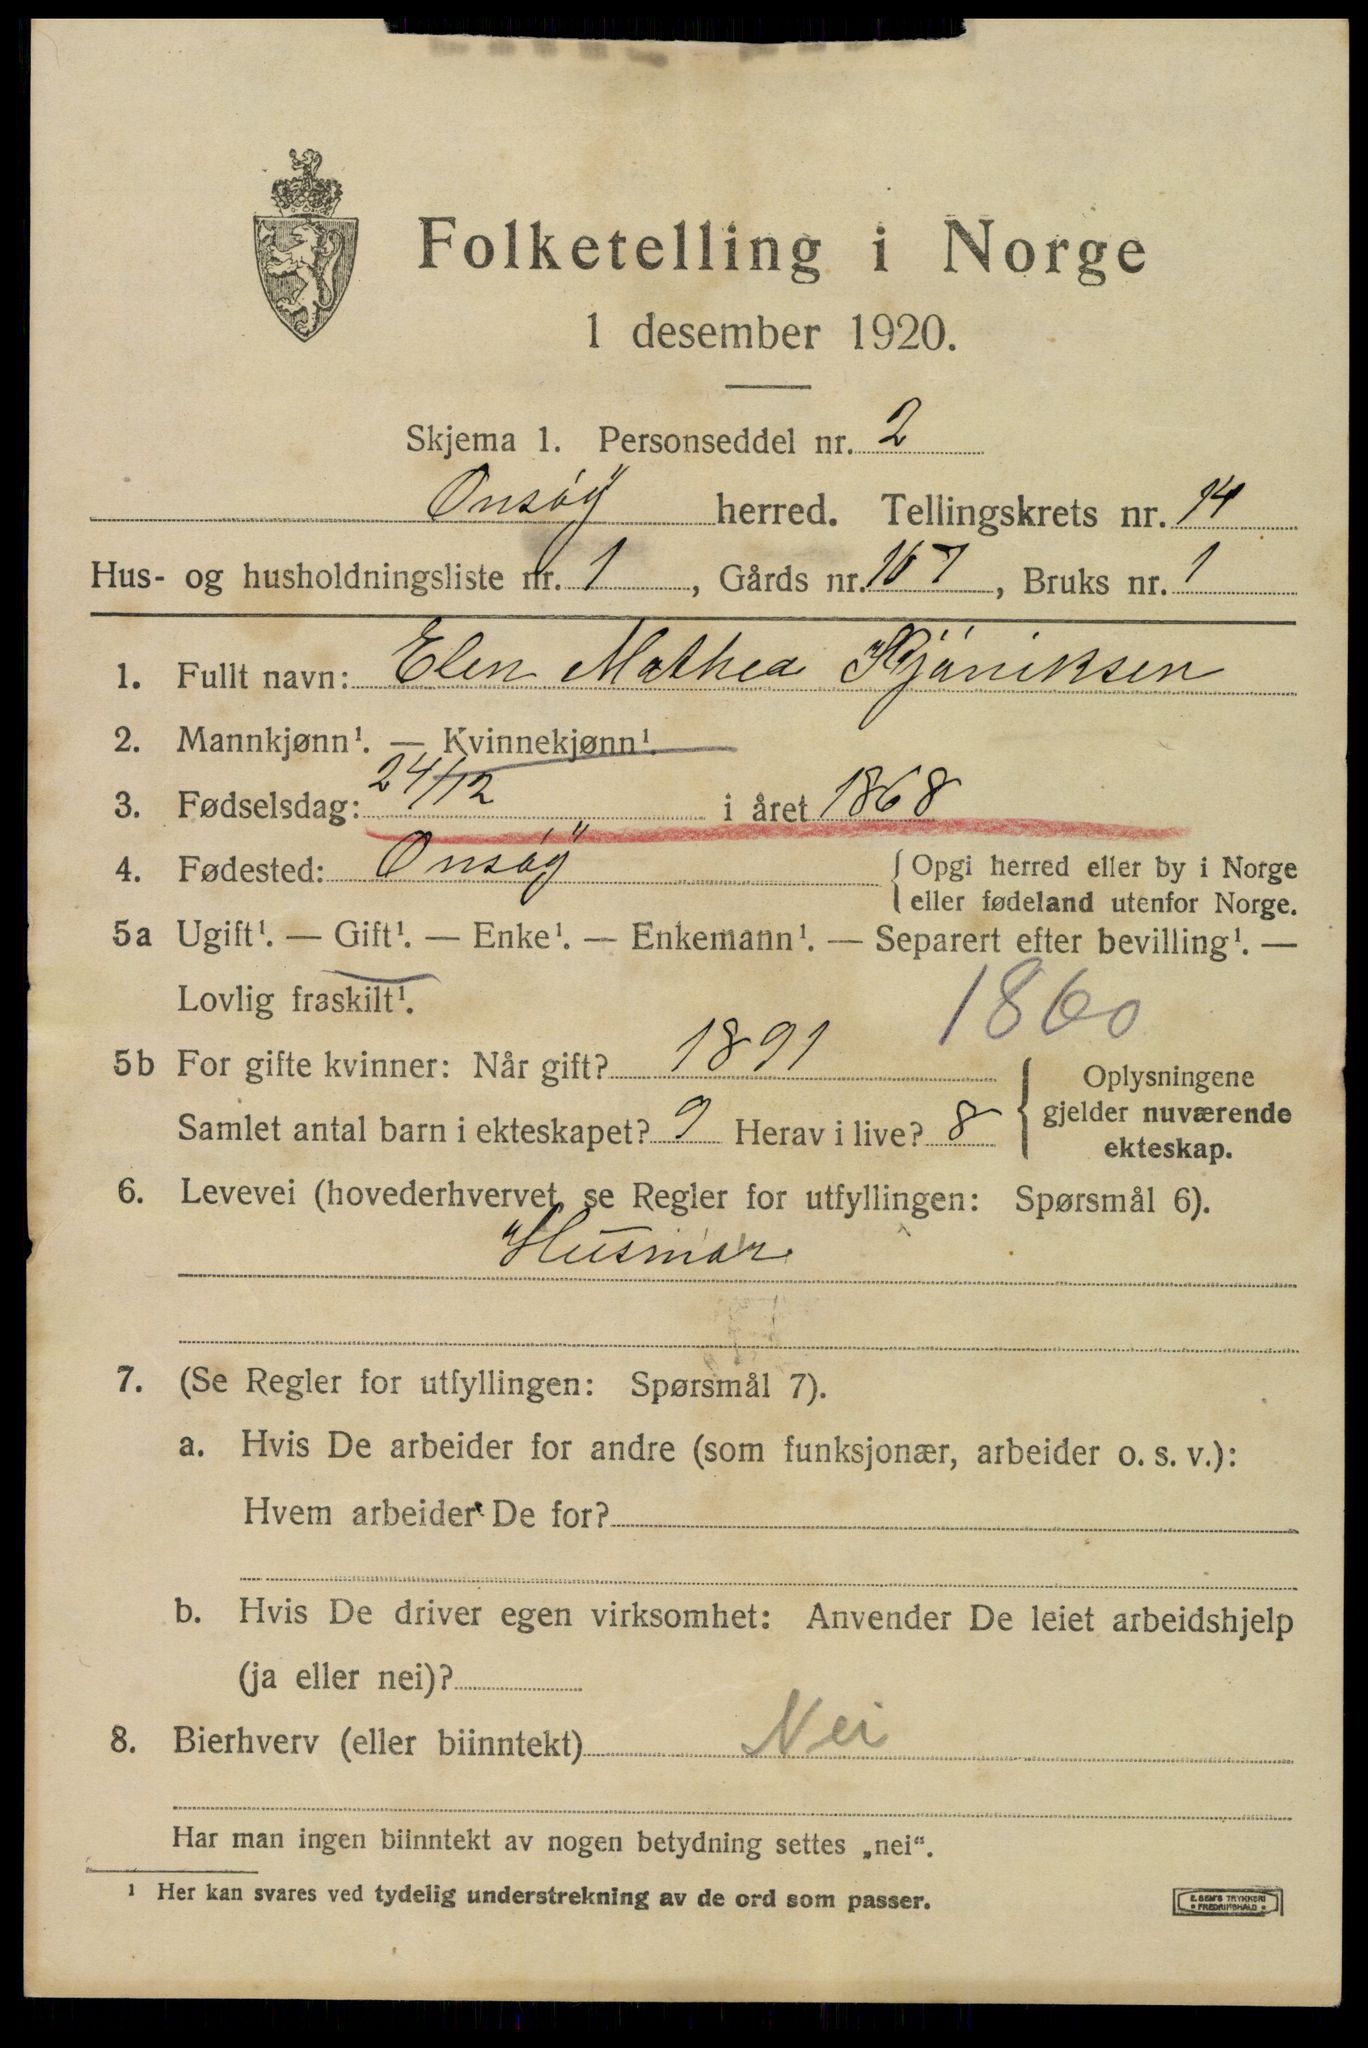 Folketelling i Norge
1 desember 1920.
Skjema 1. Personseddel nr. 2
Onsøy herred. Tellingskrets nr. 14
Hus- og husholdningsliste nr. 1, Gårds nr. 107, Bruks nr. 1
1. Fullt navn: Elen Mathea
2. Mannkjønn¹. — Kvinnekjønn¹.
3. Fødselsdag: 24/12 i året 1868
4. Fødested: Onsøy { Opgi herred eller by i Norge
eller fødeland utenfor Norge.
5a Ugift¹. — Gift¹. — Enke¹. — Enkemann¹. — Separert efter bevilling¹. —
Lovlig fraskilt¹. 1860
5b For gifte kvinner: Når gift? 1891
Samlet antal barn i ekteskapet? 9 Herav i live? 8
{ Oplysningene
gjelder nuværende
ekteskap.
6. Levevei (hovederhvervet, se Regler for utfyllingen: Spørsmål 6).
Husmor
7. (Se Regler for utfyllingen: Spørsmål 7).
a. Hvis De arbeider for andre (som funksjonær, arbeider o. s. v.):
Hvem arbeider De for?
b. Hvis De driver egen virksomhet: Anvender De leiet arbeidshjelp
(ja eller nei)?
8. Bierhverv (eller biinntekt) Nei
Har man ingen biinntekt av nogen betydning settes „nei“.
¹ Her kan svares ved tydelig understrekning av de ord som passer.
E. SEM'S TRYKKERI
* FREDRIKSHALD *